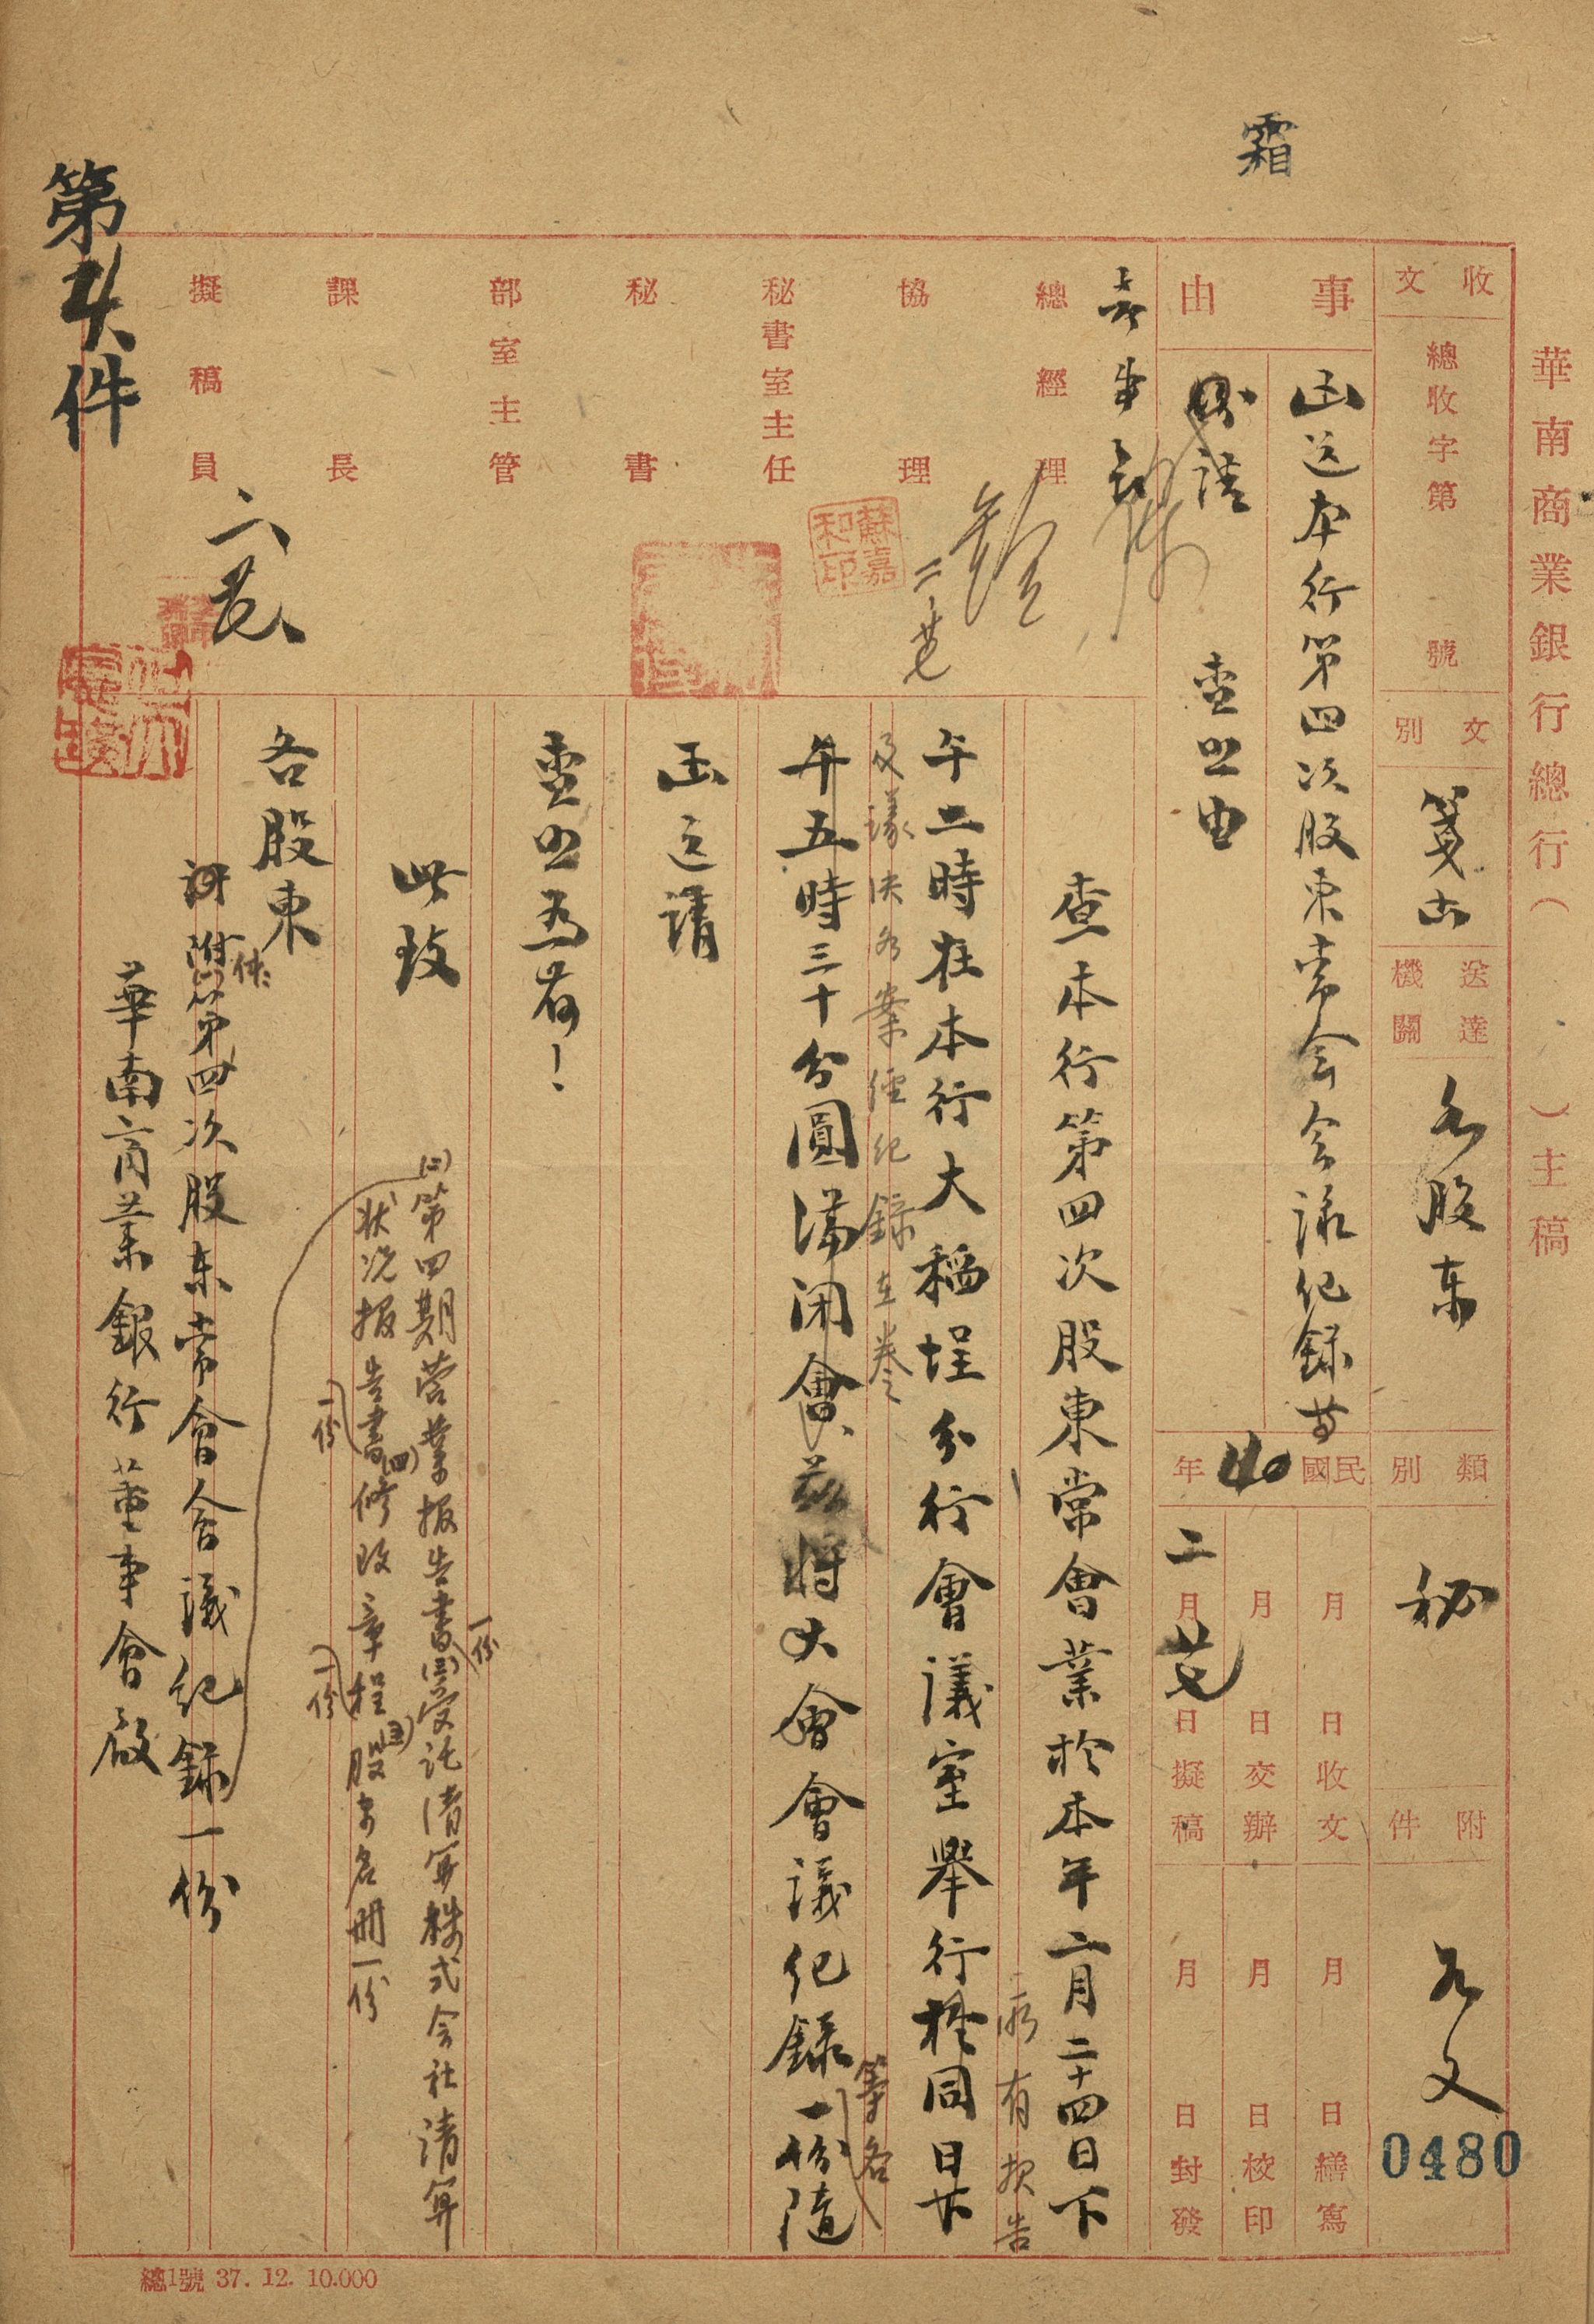 霜
華南商業銀行總行（ ）主稿
收文
總收字第 號
文別
箋函
送達機關
各股東
類別
秘
附件
如文
0480
事由
函送本行第四次股東常会会議纪録等
請
查照由
民國40年
月 日收文
月 日繕寫
月 日交辦
月 日校印
二月廿七日擬稿
月 日封發
總經理
協理
二 廿七
蘇嘉和印
秘書室主任
秘書
部室主管
課長
擬稿員
第4件
查本行第四次股東常會業於本年二月二十四日下
所有报告
午二時在本行大稻埕分行會議室舉行於同日下
及議决各案經纪録在卷
午五時三十分圓滿闭會兹將大會會議纪錄一份隨
等各
函送請
查照為荷！
此致
各股東
計附件
第四次股东常會会議纪録一份
(二)第四期营業报告書一份(三)受託清算株式会社清算
狀况报告書一份(四)修改章程一份(五)股東名册一份
華南商業銀行董事會啟
總1號 37. 12. 10.000